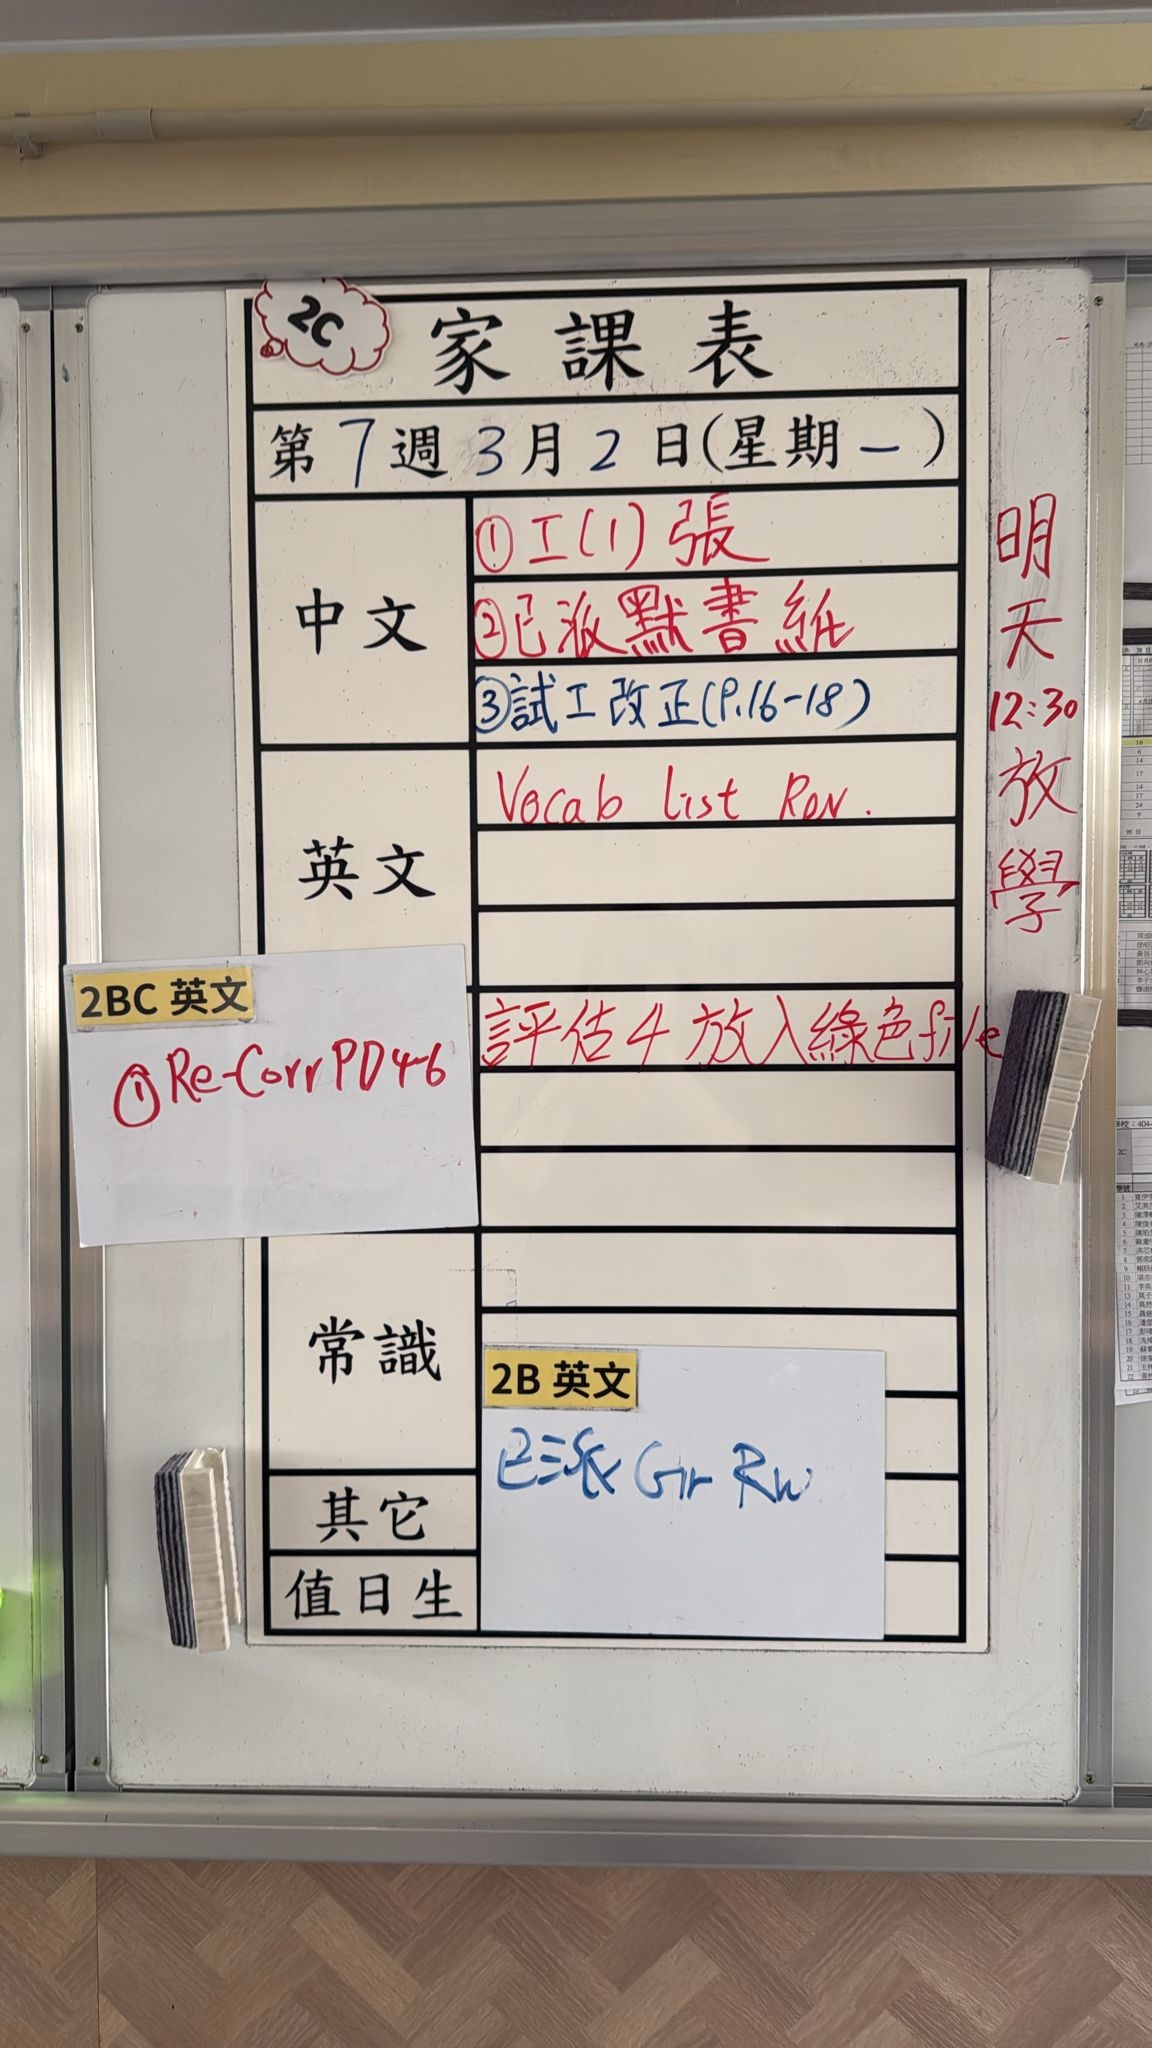 2C
家課表
第7週3月2日(星期一)
中文
①工(1)張
②已派默書紙
③試工改正(P.16-18)
英文
Vocab list Rev.
2BC 英文
①Re-Corr PD4-6
評估4 放入綠色file
常識
2B 英文
已派 Gr Rw
其它
值日生
明天
12:30
放學